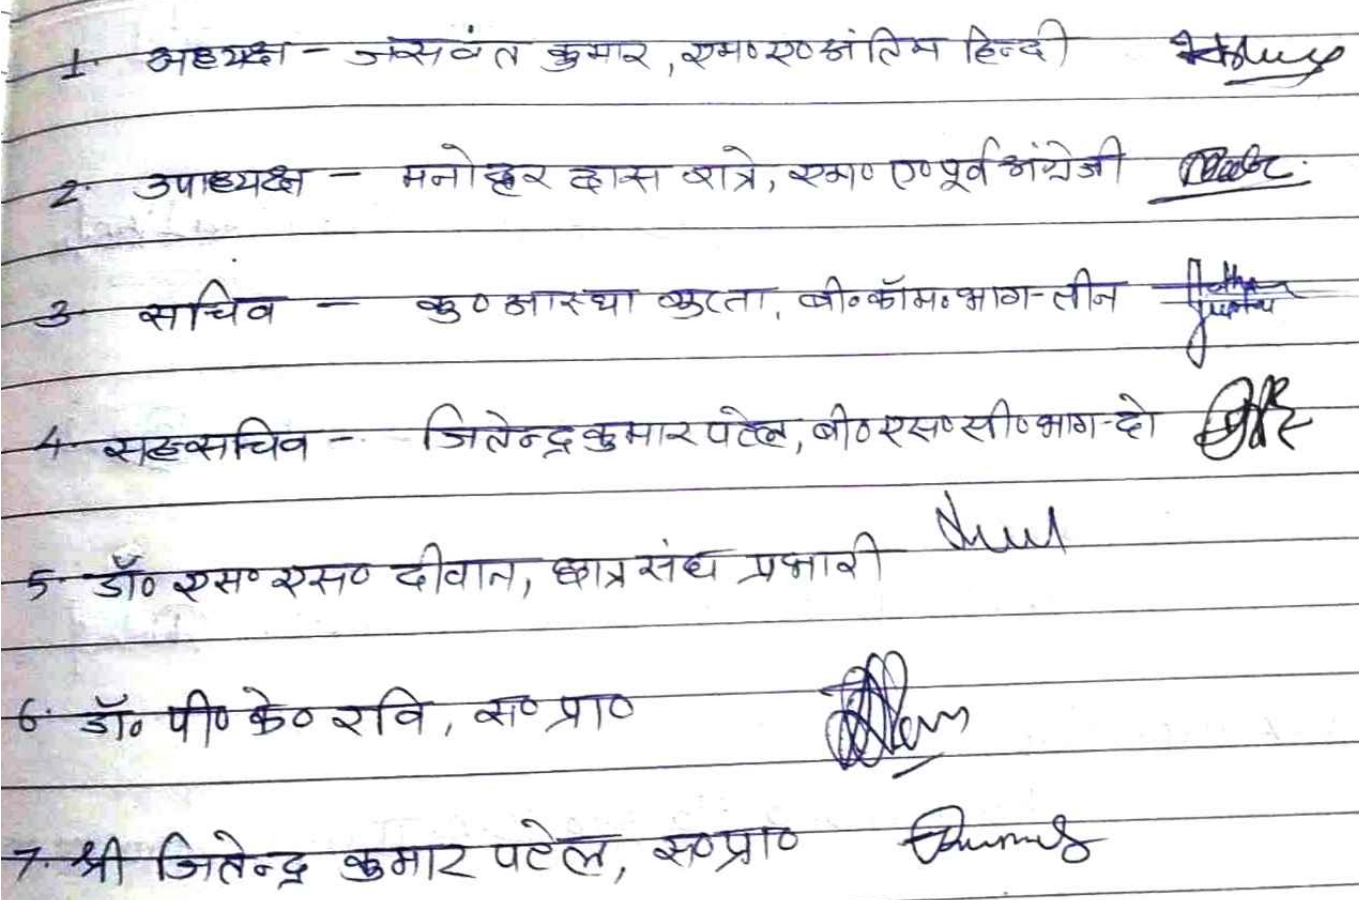 1. अध्यक्ष - जसवंत कुमार, एम० ए० अंतिम हिन्दी
2. उपाध्यक्ष - मनोहर दास रात्रे, एम० ए० पूर्व अंग्रेजी
3. सचिव - कु० आस्था गुप्ता, बी० कॉम० भाग-तीन
4. सहसचिव - जितेन्द्र कुमार पटेल, बी० एस० सी० भाग-दो
5. डॉ० एस० एस० दीवान, छात्र संघ प्रभारी
6. डॉ० पी० के० रवि, स० प्रा०
7. श्री जितेन्द्र कुमार पटेल, स० प्रा०